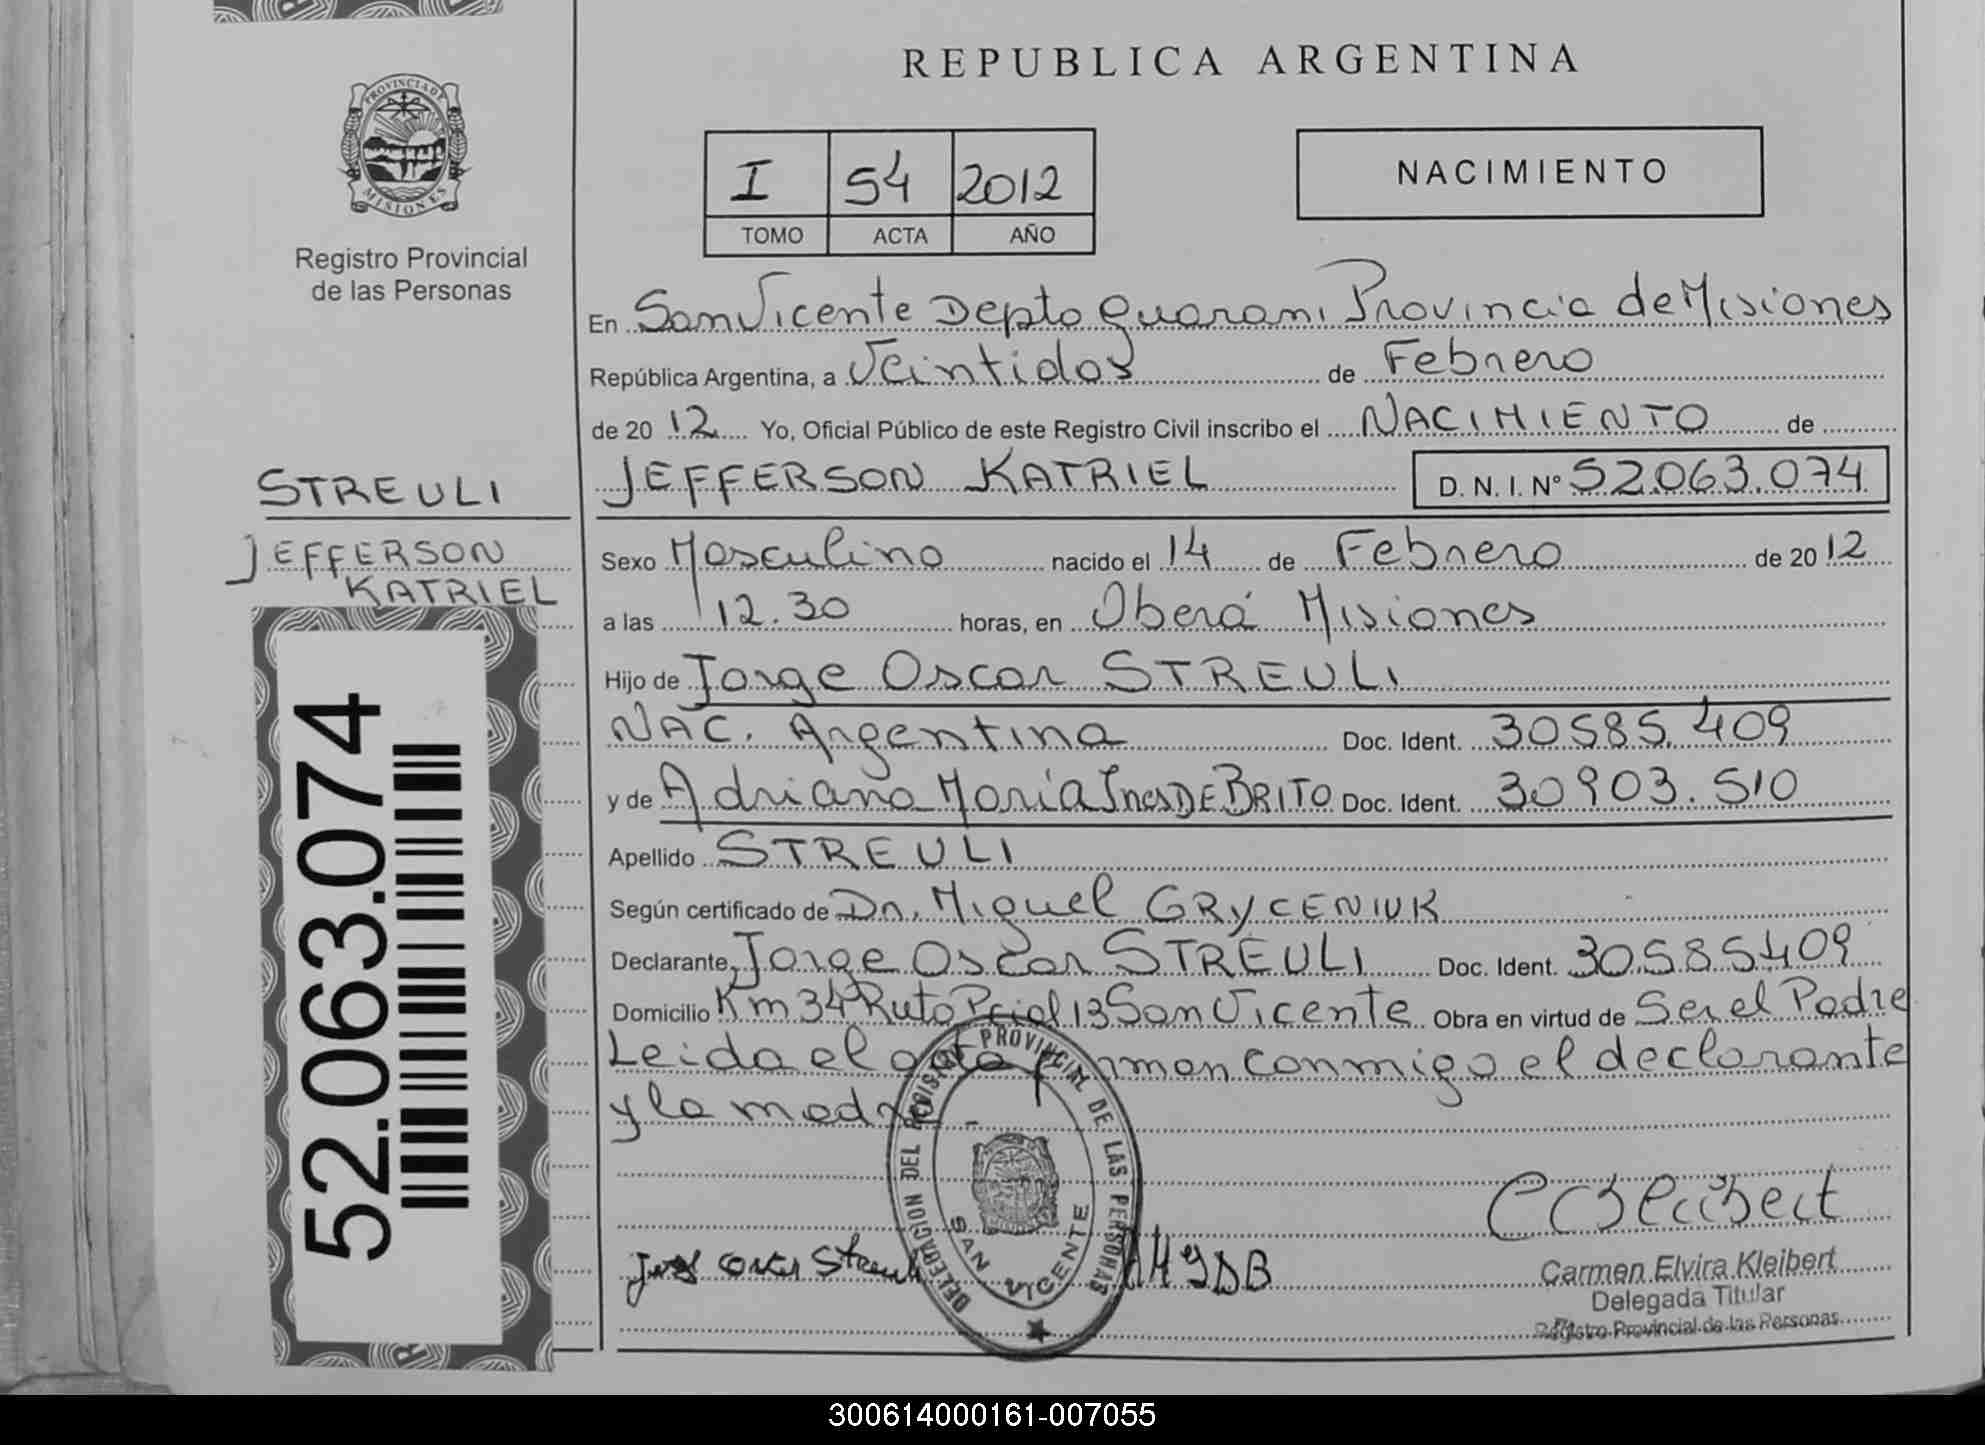 REPUBLICA ARGENTINA
PROVINCIA DE MISIONES
Registro Provincial
de las Personas
I 54 2012
TOMO ACTA AÑO
NACIMIENTO
En San Vicente Depto Guarani Provincia de Misiones
República Argentina, a Veintidos de Febrero
de 2012 Yo, Oficial Público de este Registro Civil inscribo el NACIMIENTO de
STREULI
JEFFERSON KATRIEL D. N. I. Nº 52.063.074
JEFFERSON
KATRIEL
Sexo Masculino nacido el 14 de Febrero de 2012
a las 12.30 horas, en Oberá Misiones
Hijo de Jorge Oscar STREULI
NAC. Argentina Doc. Ident. 30585.409
y de Adriana María Ines DE BRITO Doc. Ident. 30903.510
Apellido STREULI
Según certificado de Dr. Miguel GRYCENIUK
Declarante Jorge Oscar STREULI Doc. Ident. 30585409
Domicilio Km 34 Ruta Pcial 13 San Vicente Obra en virtud de Ser el Padre
Leida el acta firman conmigo el declarante
y la madre
52.063.074
DELEGACION DEL REGISTRO PROVINCIAL DE LAS PERSONAS
SAN VICENTE
Carmen Elvira Kleibert
Delegada Titular
Registro Provincial de las Personas
300614000161-007055